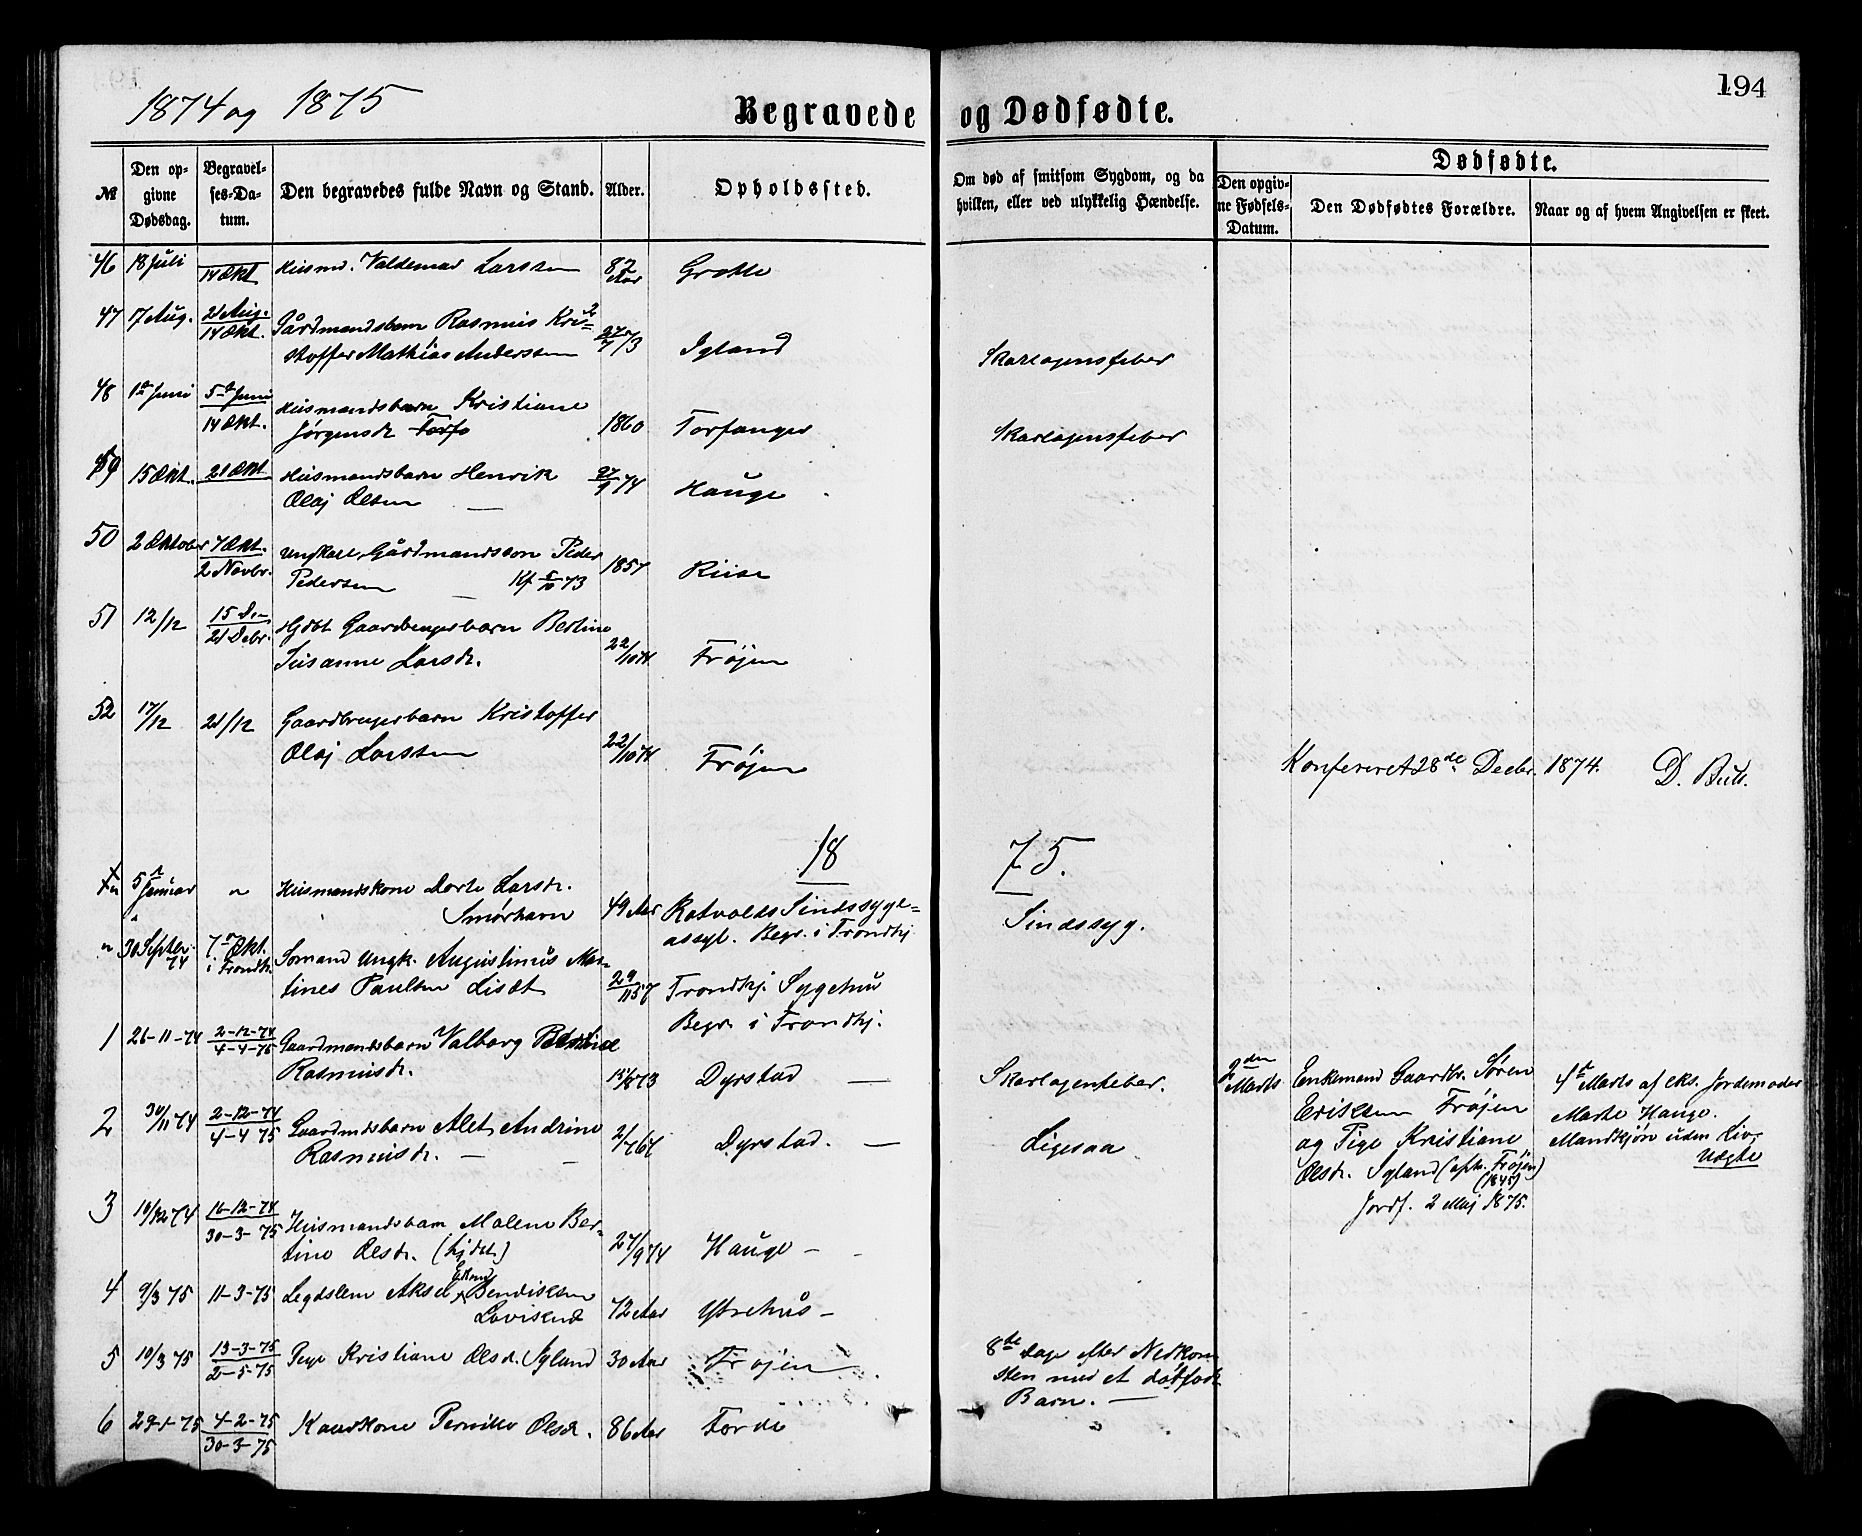 194
1874 og 1875
Begravede og Dødfødte.
№
Den op-
givne
Dødsdag.
Begravel-
ses-Da-
tum.
Den begravedes fulde Navn og Stand.
Alder.
Opholdssted.
Om død af smitsom Sygdom, og da
hvilken, eller ved ulykkelig Hændelse.
Dødfødte.
Den opgiv-
ne Fødsels-
Datum.
Den Dødfødtes Forældre.
Naar og af hvem Angivelsen er skeet.
46 18 Juli 14 Okt Husmd. Valdemar Larssen 82 Aar Grotle
47 17 Aug. 21 Aug. 14 Okt. Gårdmandsbarn Rasmus Kri-
stoffer Mathias Anderssen 27/7 73 Igland Skarlagensfeber
48 1ste Juni 5te Juni 14 Okt. Husmandsbarn Kristiane
Jørgensdr. 1860 Torfanger Skarlagensfeber
49 15 Okt. 21 Okt Husmandsbarn Henrik
Olaj Olsen 27/9 74 Hauge
50 2 Oktober 7 Okt. 2 Novbr. Ungkarl, Gårdmandssøn Peder
Pedersen Kf 5/10 73 1857 Riise
51 12/12 15 De 21 Debr. Hjdbt Gaardbrugerbarn Bertine
Susanne Larsdr. 22/10 74 Frøjen
52 17/12 21/12 Gaardbrugerbarn Kristoffer
Olaj Larssen 22/10 74 Frøjen
Konfereret 28de Decbr. 1874. D. Bull.
18 75.
n 5 Januar n Husmandskone Dorte Larsdr.
Smørhavn 49 Aar Rotvolds Sindssyge-
asyl. Begr. i Trondhj. Sindssyg.
n 30 Septbr 74 7 Okt. i Trondh. Sømand Ungk. Augustinus Mar-
tines Paulsen Liset 29/11 57 Trondhj. Sygehus
Begr. i Trondhj.
1 26-11-74 2-12-74 4-4-75 Gaardmandsbarn Valborg
Rasmusdr. 73 Dyrstad — Skarlagenfeber.
2den Marts Enkemand Gaardbr. Søren
Eriksen Frøjen
og Pige Kristiane
Olsdr. Igland (oph. Frøjen)
(1845)
Jordf. 2 Maj 1875.
4de Marts af eks. Jordemoder
Marte Hauge.
Mandkjøn uden Liv.
Uægte
2 30/11 74 2-12-74 4-4 75 Gaardmdsbarn Alet Andrine
Rasmusdr. 2/7 67 Dyrstad. — Ligesaa
3 10/12 74 16-12-74 30-3-75 Husmandsbarn Malene Ber-
tine Olsdr. (hjdt) 27/9 74 Hauge —
4 9/3 75 11-3-75 Legdslem Aksel Bendiksen
72 Aar Ytrehus —
5 10/3 75 13-3-75 2-5-75 Pige Kristiane Olsdr. Igland 30 Aar Frøjen
8de Dage efter Nedkom
sten med et dødfødt
Barn. —
6 29-1-75 4-2-75 30-3-75 Kaarkone Pernille Olsdr. 86 Aar Førde